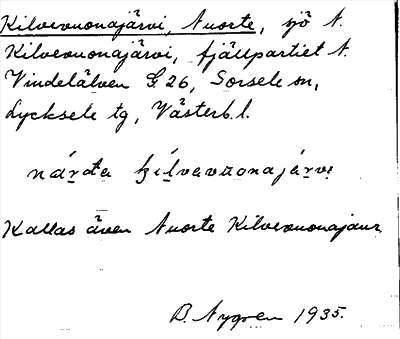 Kilvevuonajärvi, Nuorte, sjö N.
Kilvevuonajärvi, fjällpartiet N.
Vindelälven G 26, Sorsele sn,
Lycksele tg, Västerb. l.
nárđa ḱílvavuonajárvi
Kallas även Nuorte Kilvevuonajaur.
B. Nygren 1935.